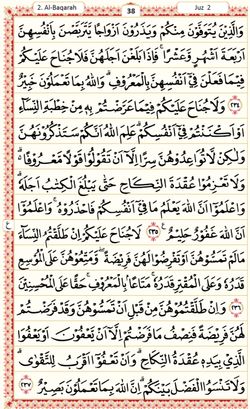 2. Al-Baqarah 38 Juz 2
وَالَّذِيْنَ يُتَوَفَّوْنَ مِنْكُمْ وَيَذَرُوْنَ اَزْوَاجًا يَّتَرَبَّصْنَ بِاَنْفُسِهِنَّ
اَرْبَعَةَ اَشْهُرٍ وَّعَشْرًا ۚ فَاِذَا بَلَغْنَ اَجَلَهُنَّ فَلَا جُنَاحَ عَلَيْكُمْ
فِيْمَا فَعَلْنَ فِيْٓ اَنْفُسِهِنَّ بِالْمَعْرُوْفِ ؕ وَاللّٰهُ بِمَا تَعْمَلُوْنَ خَبِيْرٌ
﴿۲۳۴﴾ وَلَا جُنَاحَ عَلَيْكُمْ فِيْمَا عَرَّضْتُمْ بِهٖ مِنْ خِطْبَةِ النِّسَآءِ
اَوْ اَكْنَنْتُمْ فِيْٓ اَنْفُسِكُمْ ؕ عَلِمَ اللّٰهُ اَنَّكُمْ سَتَذْكُرُوْنَهُنَّ
وَلٰكِنْ لَّا تُوَاعِدُوْهُنَّ سِرًّا اِلَّآ اَنْ تَقُوْلُوْا قَوْلًا مَّعْرُوْفًا ؕ
وَلَا تَعْزِمُوْا عُقْدَةَ النِّكَاحِ حَتّٰى يَبْلُغَ الْكِتٰبُ اَجَلَهٗ ؕ
وَاعْلَمُوْٓا اَنَّ اللّٰهَ يَعْلَمُ مَا فِيْٓ اَنْفُسِكُمْ فَاحْذَرُوْهُ ۚ وَاعْلَمُوْٓا
اَنَّ اللّٰهَ غَفُوْرٌ حَلِيْمٌ ﴿۲۳۵﴾ لَا جُنَاحَ عَلَيْكُمْ اِنْ طَلَّقْتُمُ النِّسَآءَ
مَا لَمْ تَمَسُّوْهُنَّ اَوْ تَفْرِضُوْا لَهُنَّ فَرِيْضَةً ۖ وَّمَتِّعُوْهُنَّ ۚ عَلَى الْمُوْسِعِ
قَدَرُهٗ وَعَلَى الْمُقْتِرِ قَدَرُهٗ ۚ مَتَاعًۢا بِالْمَعْرُوْفِ ۚ حَقًّا عَلَى الْمُحْسِنِيْنَ
﴿۲۳۶﴾ وَاِنْ طَلَّقْتُمُوْهُنَّ مِنْ قَبْلِ اَنْ تَمَسُّوْهُنَّ وَقَدْ فَرَضْتُمْ
لَهُنَّ فَرِيْضَةً فَنِصْفُ مَا فَرَضْتُمْ اِلَّآ اَنْ يَّعْفُوْنَ اَوْ يَعْفُوَا
الَّذِيْ بِيَدِهٖ عُقْدَةُ النِّكَاحِ ؕ وَاَنْ تَعْفُوْٓا اَقْرَبُ لِلتَّقْوٰى ؕ
وَلَا تَنْسَوُا الْفَضْلَ بَيْنَكُمْ ؕ اِنَّ اللّٰهَ بِمَا تَعْمَلُوْنَ بَصِيْرٌ ﴿۲۳۷﴾